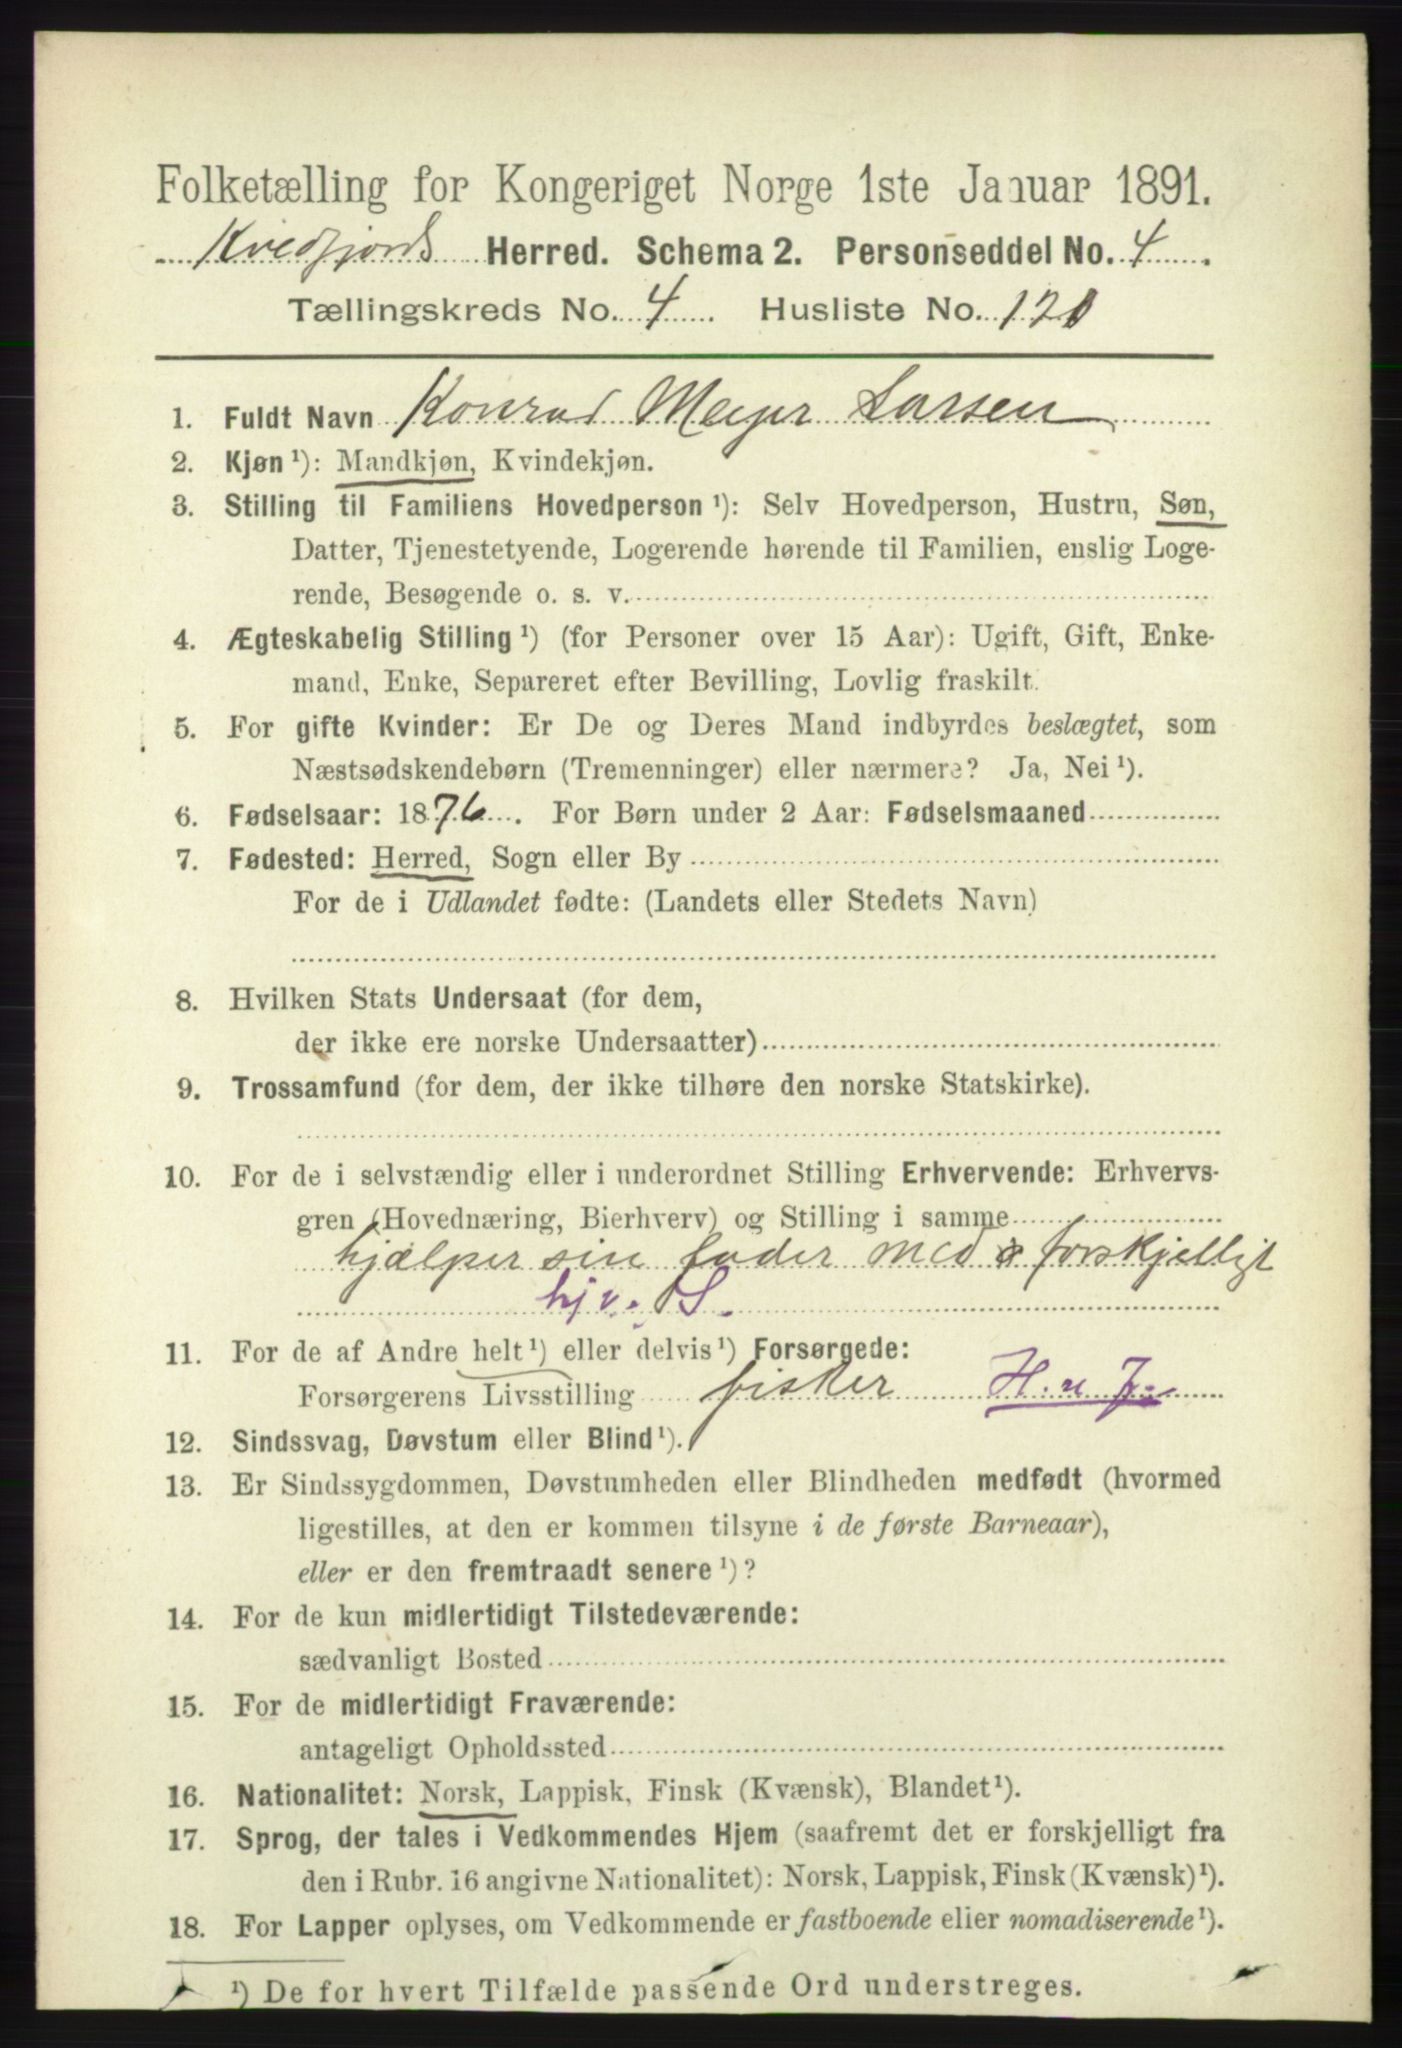 Folketælling for Kongeriget Norge 1ste Januar 1891.
Kvedfjords Herred. Schema 2. Personseddel No. 4.
Tællingskreds No. 4. Husliste No. 121
1. Fuldt Navn Konrad Meyer Larsen
2. Kjøn ¹): Mandkjøn, Kvindekjøn.
3. Stilling til Familiens Hovedperson ¹): Selv Hovedperson, Hustru, Søn,
Datter, Tjenestetyende, Logerende hørende til Familien, enslig Loge-
rende, Besøgende o. s. v.
4. Ægteskabelig Stilling ¹) (for Personer over 15 Aar): Ugift, Gift, Enke-
mand, Enke, Separeret efter Bevilling, Lovlig fraskilt.
5. For gifte Kvinder: Er De og Deres Mand indbyrdes beslægtet, som
Næstsødskendebørn (Tremenninger) eller nærmere? Ja, Nei ¹).
6. Fødselsaar: 1876. For Børn under 2 Aar: Fødselsmaaned
7. Fødested: Herred, Sogn eller By
For de i Udlandet fødte: (Landets eller Stedets Navn)
8. Hvilken Stats Undersaat (for dem,
der ikke ere norske Undersaatter)
9. Trossamfund (for dem, der ikke tilhøre den norske Statskirke).
10. For de i selvstændig eller i underordnet Stilling Erhvervende: Erhvervs-
gren (Hovednæring, Bierhverv) og Stilling i samme
hjælper sin fader med forskjelligt
hjv. S.
11. For de af Andre helt ¹) eller delvis ¹) Forsørgede:
Forsørgerens Livsstilling fisker H. u J.
12. Sindssvag, Døvstum eller Blind ¹).
13. Er Sindssygdommen, Døvstumheden eller Blindheden medfødt (hvormed
ligestilles, at den er kommen tilsyne i de første Barneaar),
eller er den fremtraadt senere ¹)?
14. For de kun midlertidigt Tilstedeværende:
sædvanligt Bosted
15. For de midlertidigt Fraværende:
antageligt Opholdssted
16. Nationalitet: Norsk, Lappisk, Finsk (Kvænsk), Blandet ¹).
17. Sprog, der tales i Vedkommendes Hjem (saafremt det er forskjelligt fra
den i Rubr. 16 angivne Nationalitet): Norsk, Lappisk, Finsk (Kvænsk) ¹).
18. For Lapper oplyses, om Vedkommende er fastboende eller nomadiserende ¹).
¹) De for hvert Tilfælde passende Ord understreges.